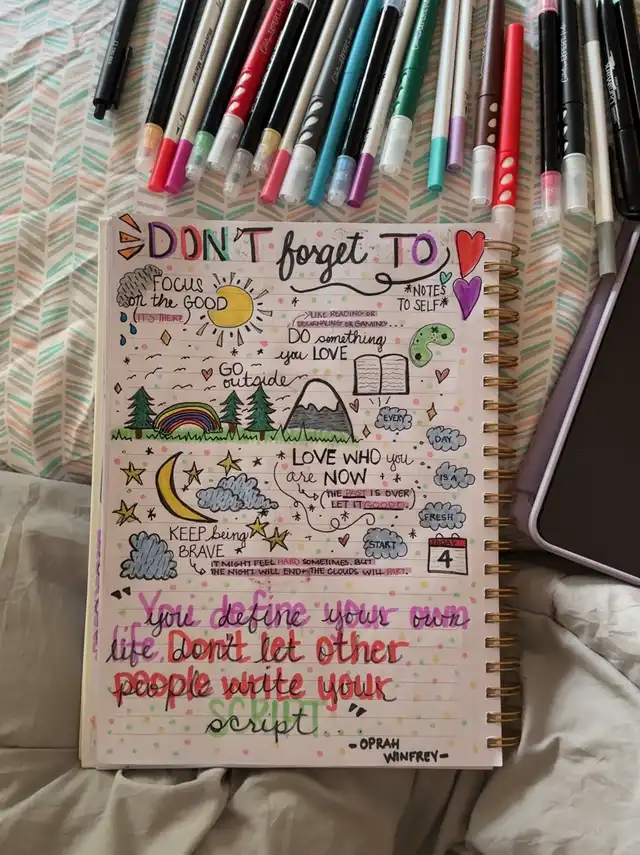 DON'T forget TO
*NOTES
TO SELF*
FOCUS
on the GOOD
(IT'S THERE)
LIKE READING OR
JOURNALING OR GAMING...
DO something
you LOVE
GO
outside
EVERY
DAY
IS A
FRESH
START
LOVE WHO you
are NOW
THE PAST IS OVER
LET IT GOOOO.
TODAY
4
KEEP being
BRAVE
IT MIGHT FEEL HARD SOMETIMES, BUT
THE NIGHT WILL END & THE CLOUDS WILL PART.
"You define your own
life. Don't let other
people write your
script..."
SCRIPT
-OPRAH
WINFREY-